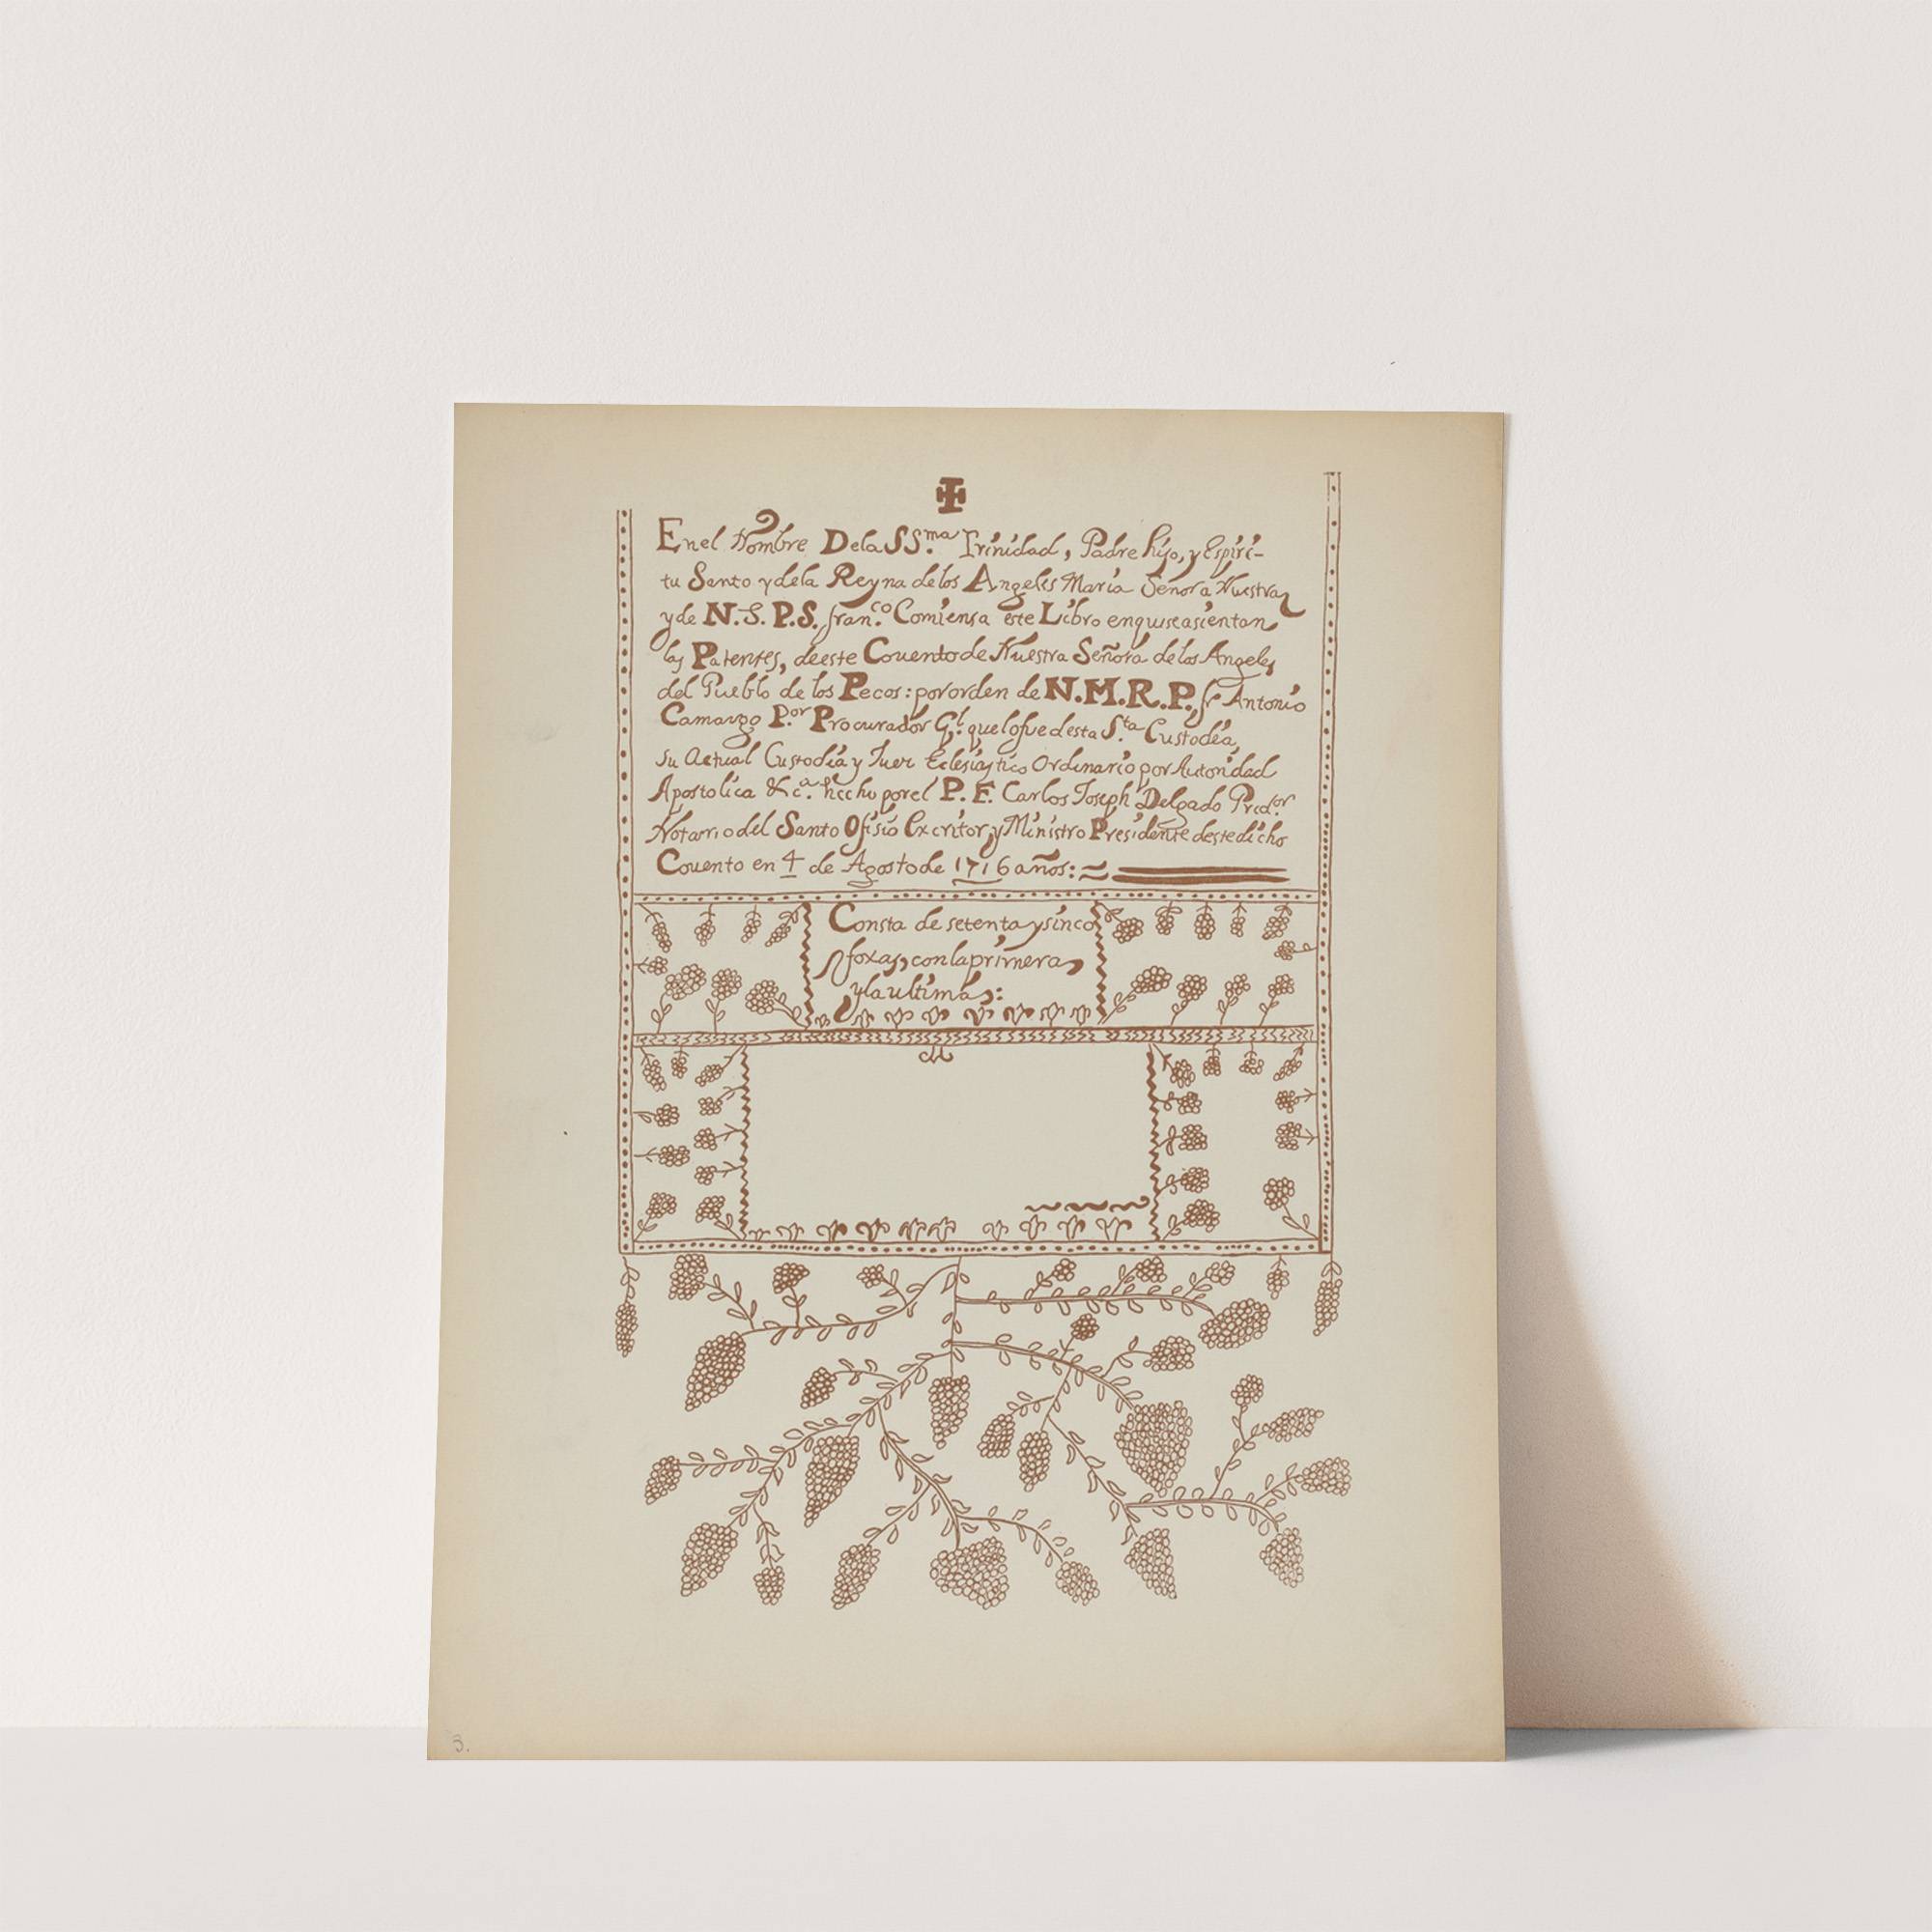 Enel Nombre Dela SS.ma Trinidad, Padre hijo, y Espiri-
tu Santo y dela Reyna delos Angeles Maria Señora Nuestra
y de N.S.P.S. fran.co Comiensa este Libro enquiseasientan
las Patentes, deeste Couento de Nuestra Señora delos Angeles
del Pueblo de los Pecos: pororden de N.M.R.P. fr Antonio
Camargo P.or Procurador G.l quelofue desta S.ta Custodia,
su Actual Custodia y Juez Eclesiastico Ordinario por Autoridad
Apostolica &c.a hecho porel P. F. Carlos Joseph Delgado Pred.or
Notario del Santo Ofisio Excritor, y Ministro Presidente destedicho
Couento en 4 de Agosto de 1716 años:
Consta de setenta y sinco
foxas, con la primera
y la ultima:
3.